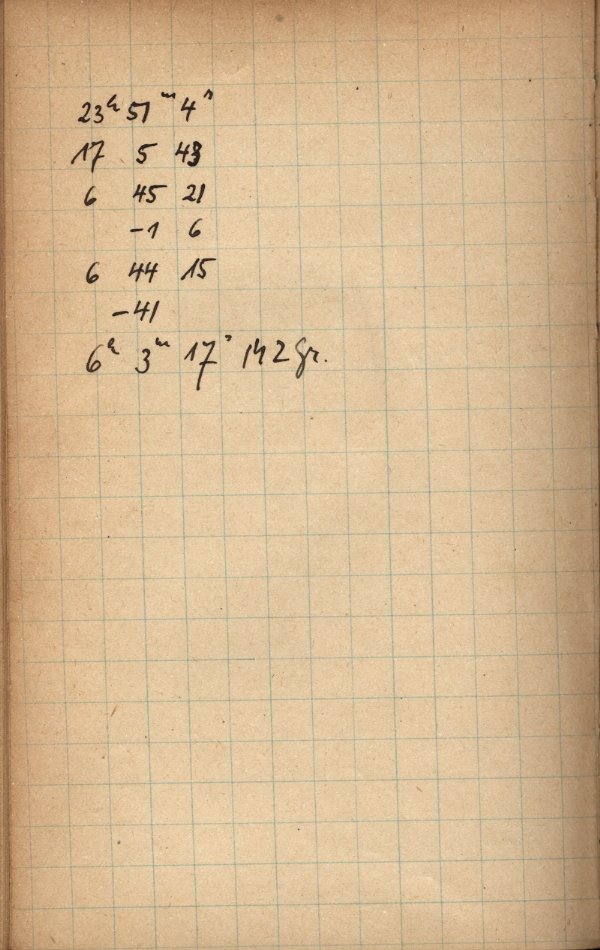 23h 51m 4s
17 5 43
6 45 21
-1 6
6 44 15
-41
6h 3m 17s 142 gr.